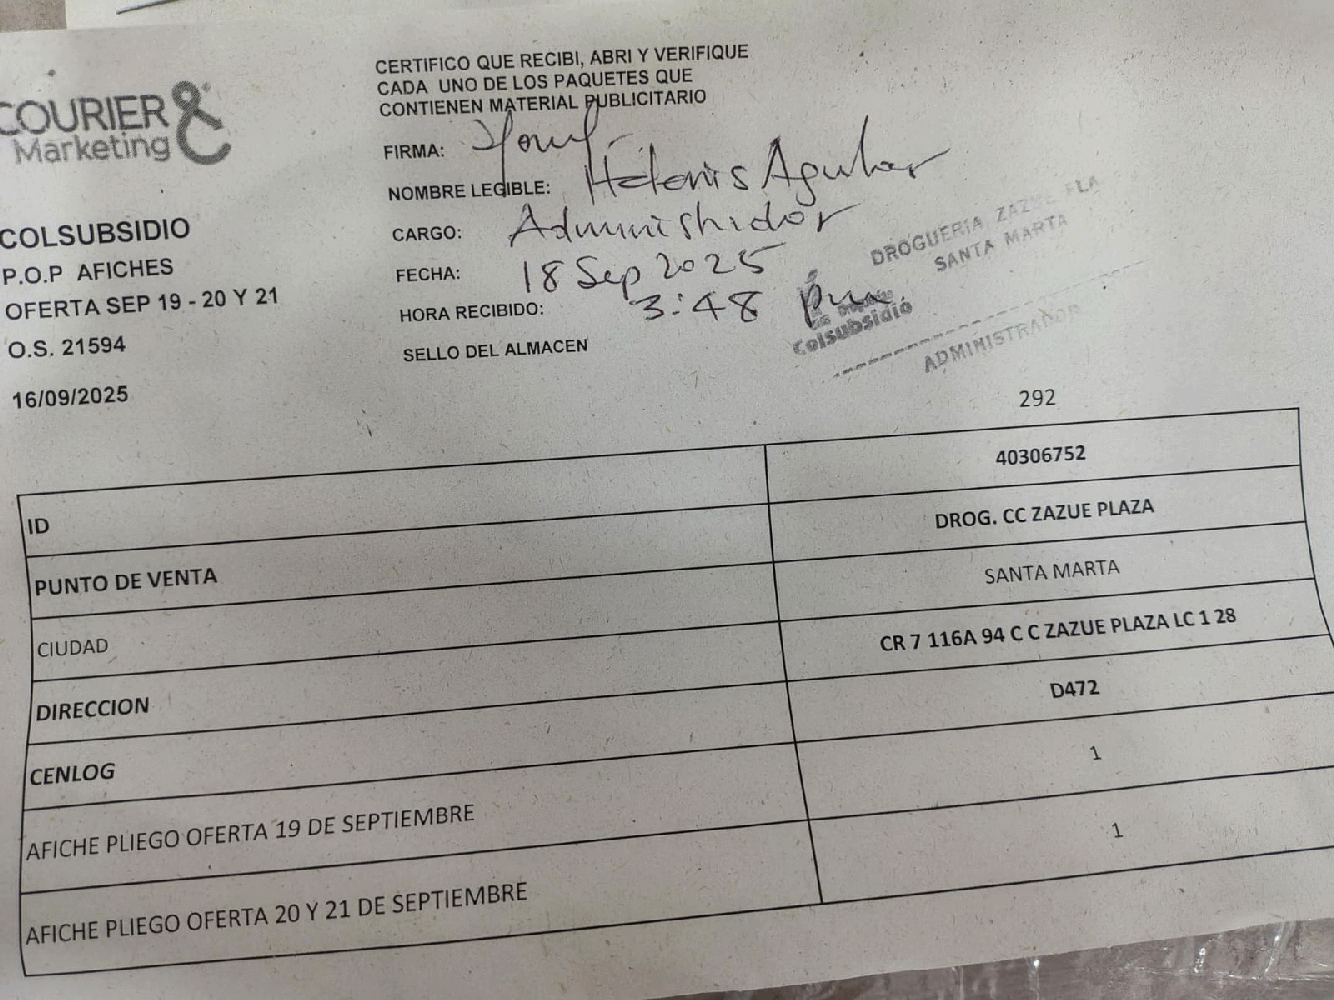 COURIER &
Marketing
COLSUBSIDIO
P.O.P AFICHES
OFERTA SEP 19 - 20 Y 21
O.S. 21594
16/09/2025
CERTIFICO QUE RECIBI, ABRI Y VERIFIQUE
CADA UNO DE LOS PAQUETES QUE
CONTIENEN MATERIAL PUBLICITARIO
FIRMA:
NOMBRE LEGIBLE: Helenis Aguilar
CARGO: Administrador
FECHA: 18 Sep 2025
HORA RECIBIDO: 3:48 pm
SELLO DEL ALMACEN
DROGUERIA ZAZUE PLA
SANTA MARTA
Colsubsidio
ADMINISTRADOR
292
ID 40306752
PUNTO DE VENTA DROG. CC ZAZUE PLAZA
CIUDAD SANTA MARTA
DIRECCION CR 7 116A 94 C C ZAZUE PLAZA LC 1 28
CENLOG D472
AFICHE PLIEGO OFERTA 19 DE SEPTIEMBRE 1
AFICHE PLIEGO OFERTA 20 Y 21 DE SEPTIEMBRE 1